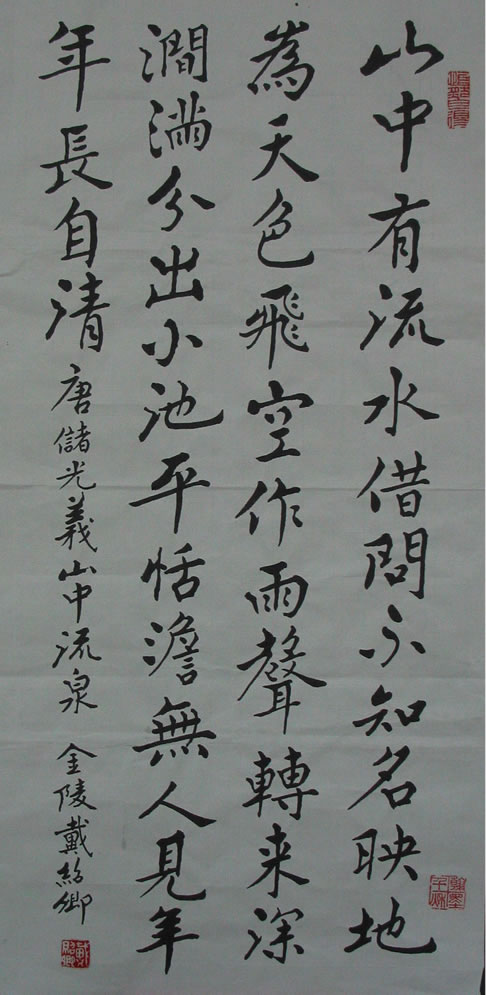 山中有流水借問不知名映地
為天色飛空作雨聲轉来深
澗満分出小池平恬澹無人見年
年長自清
唐儲光義山中流泉
金陵戴紹卿